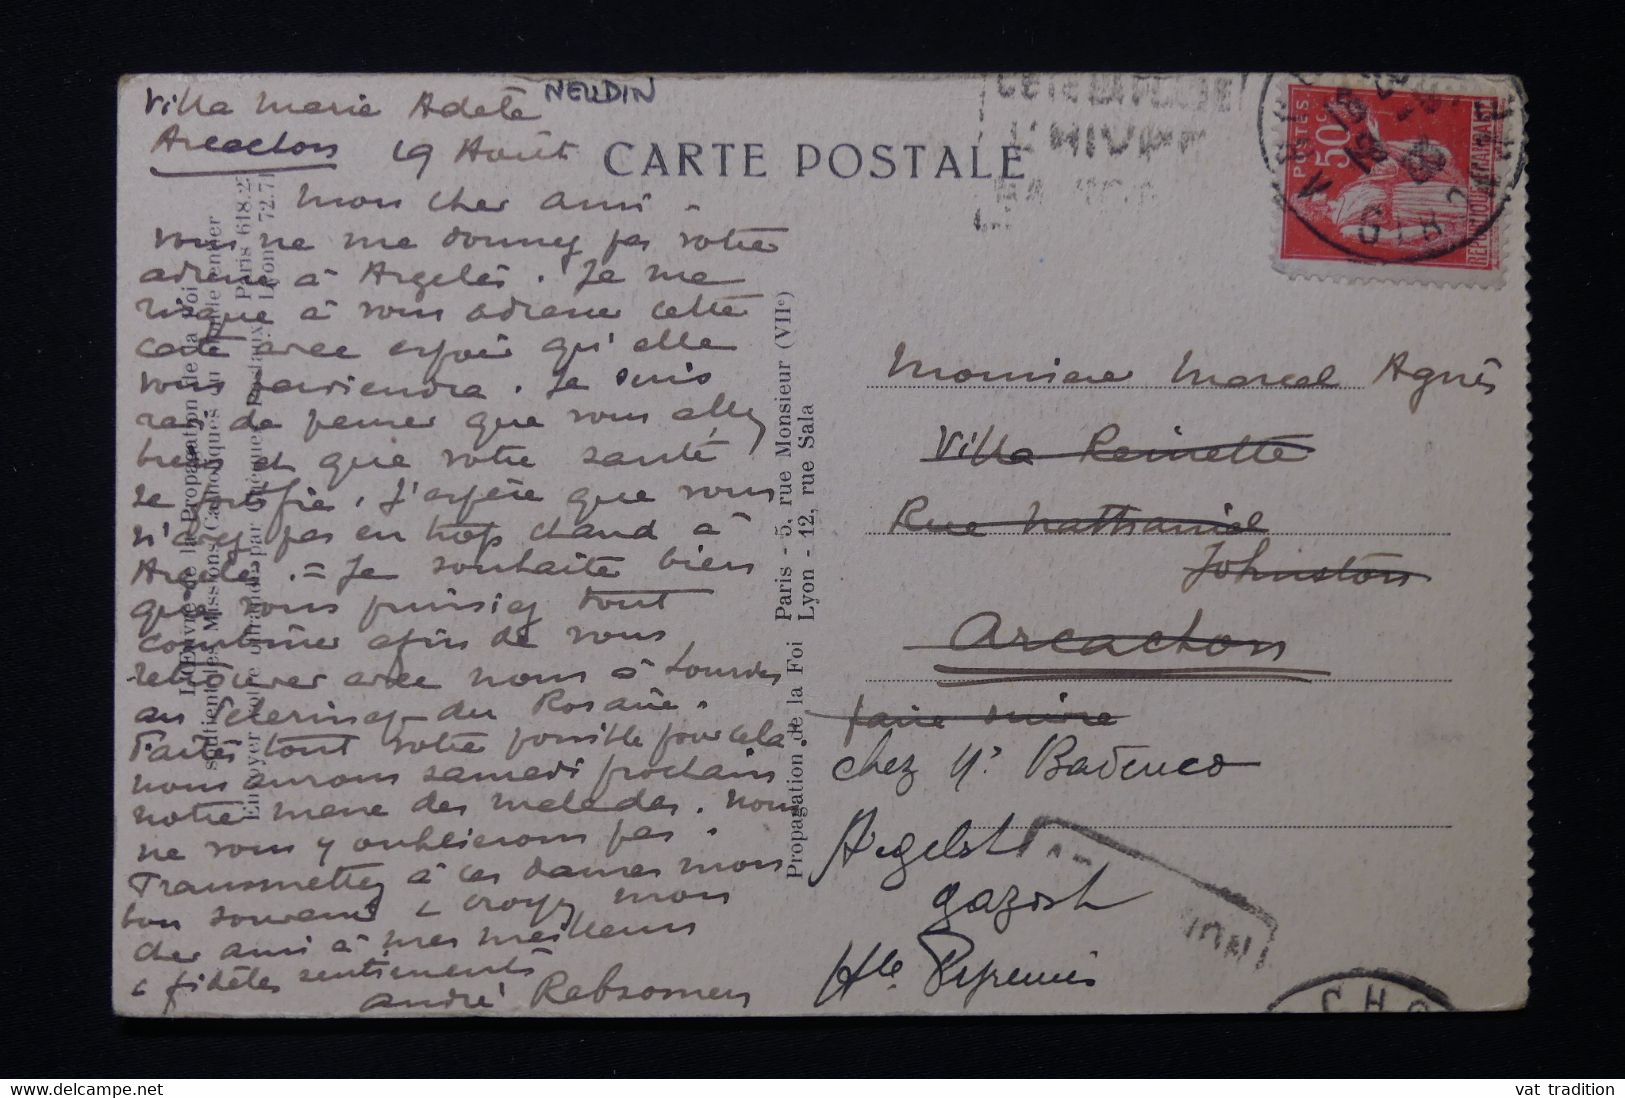 NEUDIN
Villa Marie Adèle
Arcachon 19 Août
CARTE POSTALE
L'HIVER
POSTES
50c
Mon cher ami -
vous ne me donnez pas votre
adresse à Argelès. Je me
risque à vous adresser cette
carte avec espoir qu'elle
vous parviendra. Je suis
de penser que vous allez
bien et que votre santé
se fortifie. J'espère que vous
n'avez pas eu trop chaud à
Argelès. = Je souhaite bien
que vous puissiez tout
combiner afin de vous
retrouver avec nous à Lourdes
au Pèlerinage du Rosaire.
Faites tout votre possible pour cela.
nous aurons samedi prochain
notre messe des malades. nous
ne vous y oublierons pas.
Transmettez à ces dames mon
bon souvenir & croyez mon
cher ami à mes meilleurs
& fidèles sentiments
André Rebsomen
L'Œuvre de la Propagation de la Foi
soutient les Missions Catholiques du Monde entier
Envoyer votre offrande par Chèques Postaux
Paris 618.2
Lyon 72.71
Propagation de la Foi
Paris - 5, rue Monsieur (VIIe)
Lyon - 12, rue Sala
Monsieur Marcel Agnès
Villa Reinette
Rue Nathaniel
Johnston
Arcachon
faire suivre
chez Mr
Argelès
gazost
Htes Pyrenées
INCON
CHO
vat tradition